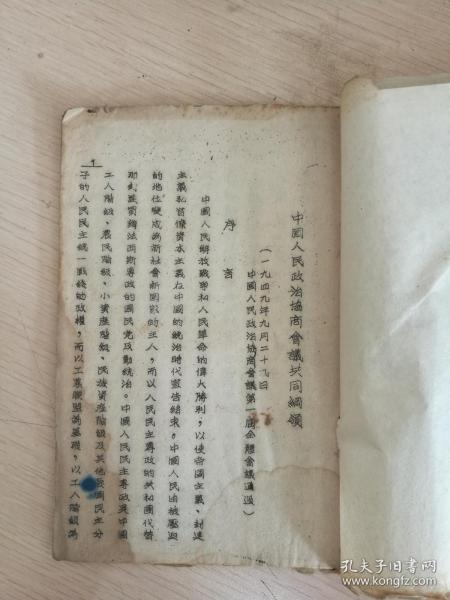 中國人民政治協商會議共同綱領
(一九四九年九月二十九日
中國人民政治協商會議第一屆全體會議通過)
序言
中國人民解放戰爭和人民革命的偉大勝利,以使帝國主義、封建
主義和官僚資本主義在中國的統治時代宣告結束。中國人民由被壓迫
的地位變成為新社會新國家的主人,而以人民民主專政的共和國代替
那封建買辦法西斯專政的國民党反動統治。中國人民民主專政是中國
工人階級、農民階級、小資產階級、民族資產階級及其他愛國民主分
子的人民民主統一戰綫的政權,而以工農聯盟為基礎,以工人階級為
1
孔夫子旧书网
kongfz.com